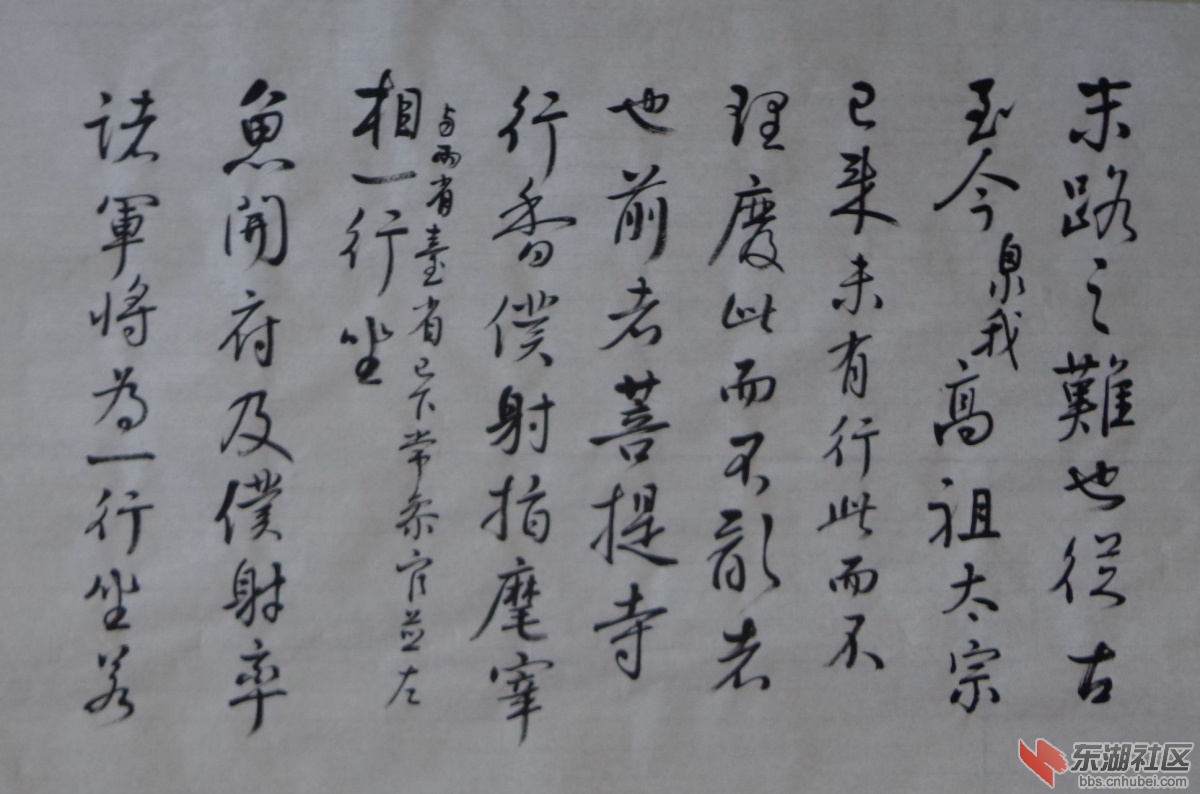 末路之難也從古
至今臮我高祖太宗
已來未有行此而不
理廢此而不亂者
也前者菩提寺
行香僕射指麾宰
与兩省臺省已下常參官並
相一行坐
魚開府及僕射率
諸軍將為一行坐若
东湖社区
bbs.cnhubei.com